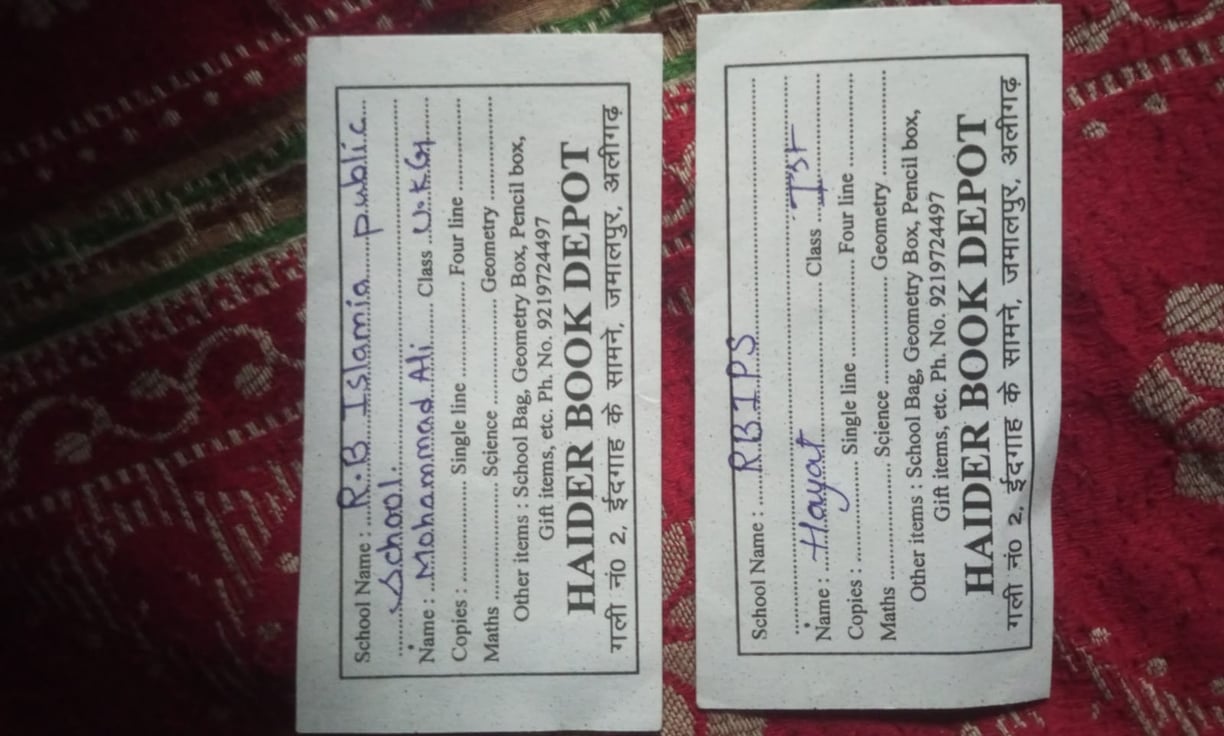 School Name : ......R.B Islamia public
School.
Name : Mohammad Ali Class U.KG
Copies : .................. Single line .................. Four line ..................
Maths .................. Science .................. Geometry ..................
Other items : School Bag, Geometry Box, Pencil box,
Gift items, etc. Ph. No. 9219724497
HAIDER BOOK DEPOT
गली नं0 2, ईदगाह के सामने, जमालपुर, अलीगढ़
School Name : ......RBIPS
Name : Hayat Class Ist
Copies : .................. Single line .................. Four line ..................
Maths .................. Science .................. Geometry ..................
Other items : School Bag, Geometry Box, Pencil box,
Gift items, etc. Ph. No. 9219724497
HAIDER BOOK DEPOT
गली नं0 2, ईदगाह के सामने, जमालपुर, अलीगढ़